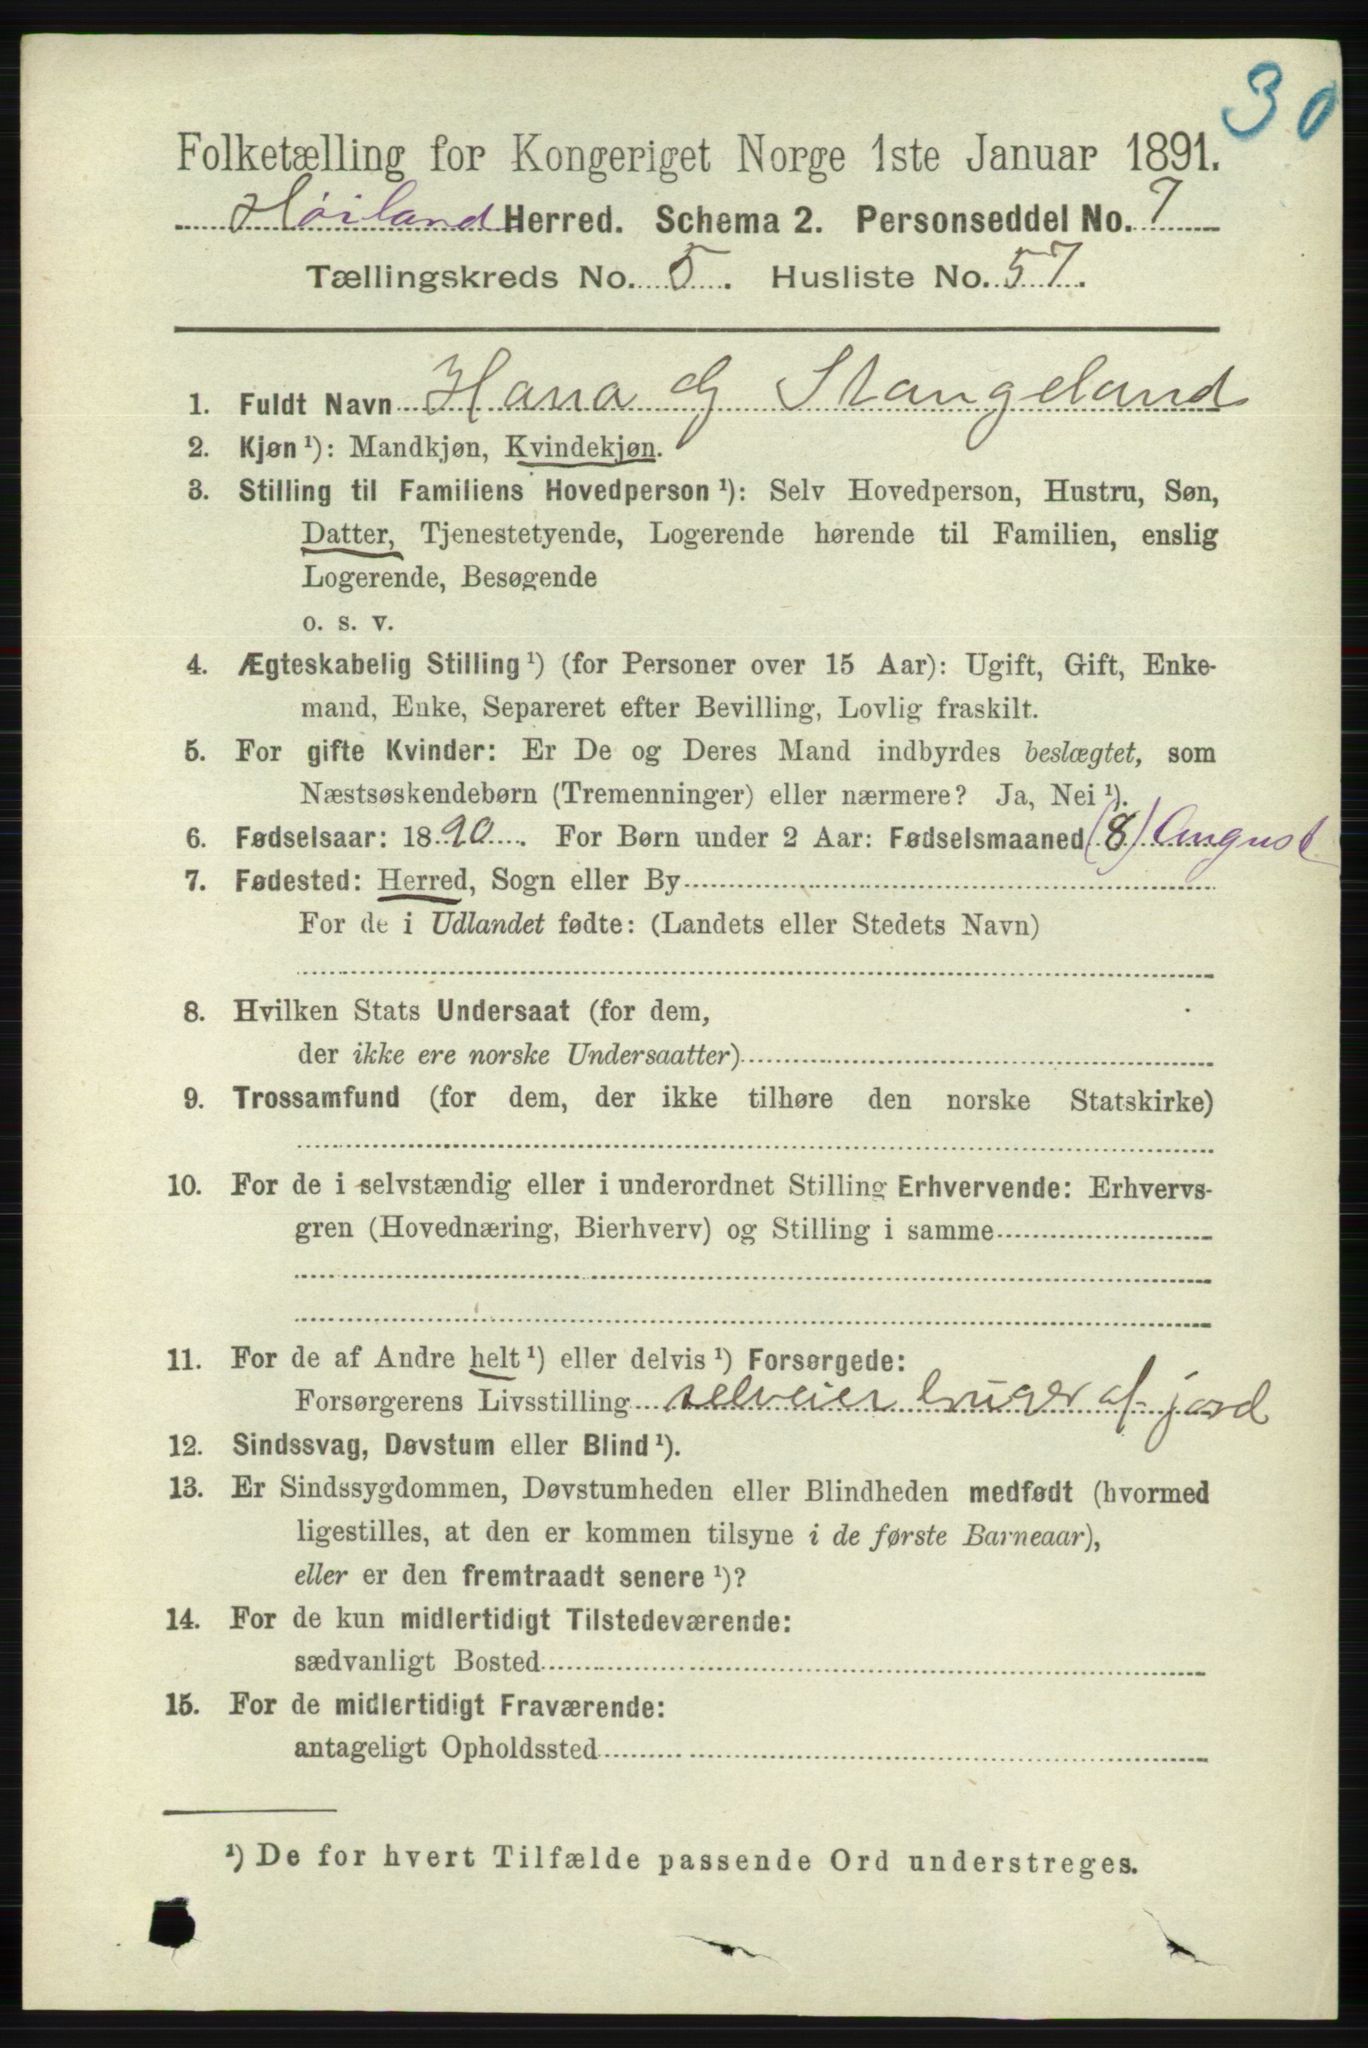 30
Folketælling for Kongeriget Norge 1ste Januar 1891.
Høiland Herred. Schema 2. Personseddel No. 7
Tællingskreds No. 5. Husliste No. 57.
1. Fuldt Navn Hana G Stangeland
2. Kjøn ¹): Mandkjøn, Kvindekjøn.
3. Stilling til Familiens Hovedperson ¹): Selv Hovedperson, Hustru, Søn,
Datter, Tjenestetyende, Logerende hørende til Familien, enslig
Logerende, Besøgende
o. s. v.
4. Ægteskabelig Stilling ¹) (for Personer over 15 Aar): Ugift, Gift, Enke-
mand, Enke, Separeret efter Bevilling, Lovlig fraskilt.
5. For gifte Kvinder: Er De og Deres Mand indbyrdes beslægtet, som
Næstsøskendebørn (Tremenninger) eller nærmere? Ja, Nei ¹).
6. Fødselsaar: 1890. For Børn under 2 Aar: Fødselsmaaned (8) August
7. Fødested: Herred, Sogn eller By
For de i Udlandet fødte: (Landets eller Stedets Navn)
8. Hvilken Stats Undersaat (for dem,
der ikke ere norske Undersaatter)
9. Trossamfund (for dem, der ikke tilhøre den norske Statskirke)
10. For de i selvstændig eller i underordnet Stilling Erhvervende: Erhvervs-
gren (Hovednæring, Bierhverv) og Stilling i samme
11. For de af Andre helt ¹) eller delvis ¹) Forsørgede:
Forsørgerens Livsstilling selveier bruger af jord
12. Sindssvag, Døvstum eller Blind ¹).
13. Er Sindssygdommen, Døvstumheden eller Blindheden medfødt (hvormed
ligestilles, at den er kommen tilsyne i de første Barneaar),
eller er den fremtraadt senere ¹)?
14. For de kun midlertidigt Tilstedeværende:
sædvanligt Bosted
15. For de midlertidigt Fraværende:
antageligt Opholdssted
¹) De for hvert Tilfælde passende Ord understreges.